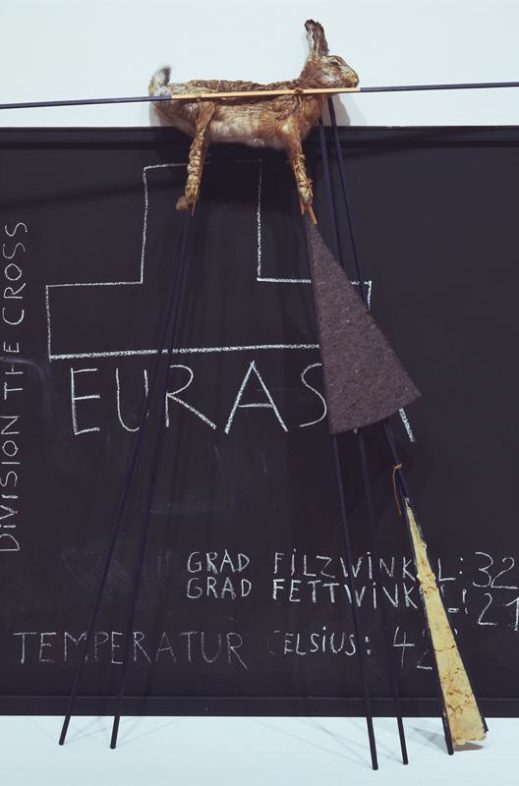 DIVISION THE CROSS
EURAS
GRAD FILZWINKEL: 32
GRAD FETTWINK : 21
TEMPERATUR CELSIUS: 42